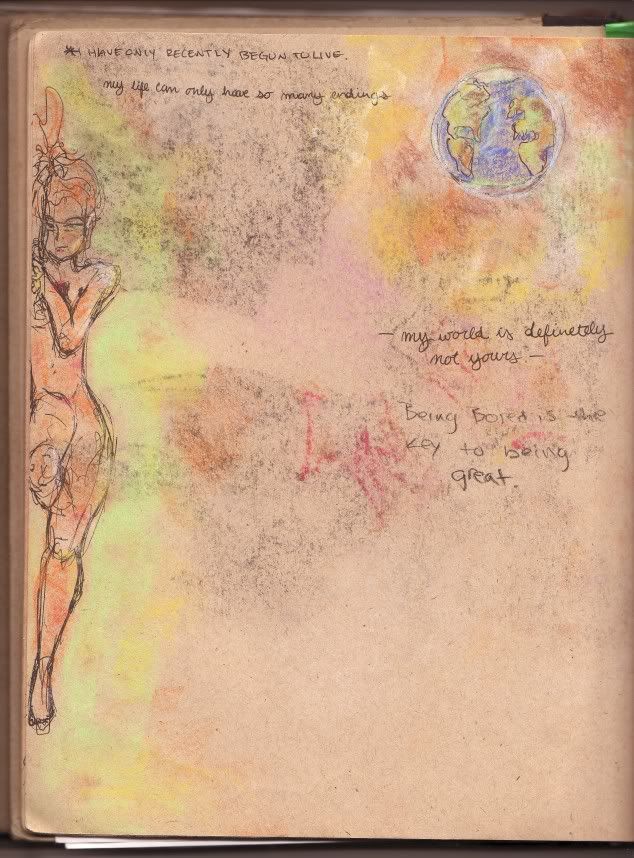 *I HAVE ONLY RECENTLY BEGUN TO LIVE.
my life can only have so many endings
— my world is definetely
not yours. —
Being Bored is the
key to being
great.